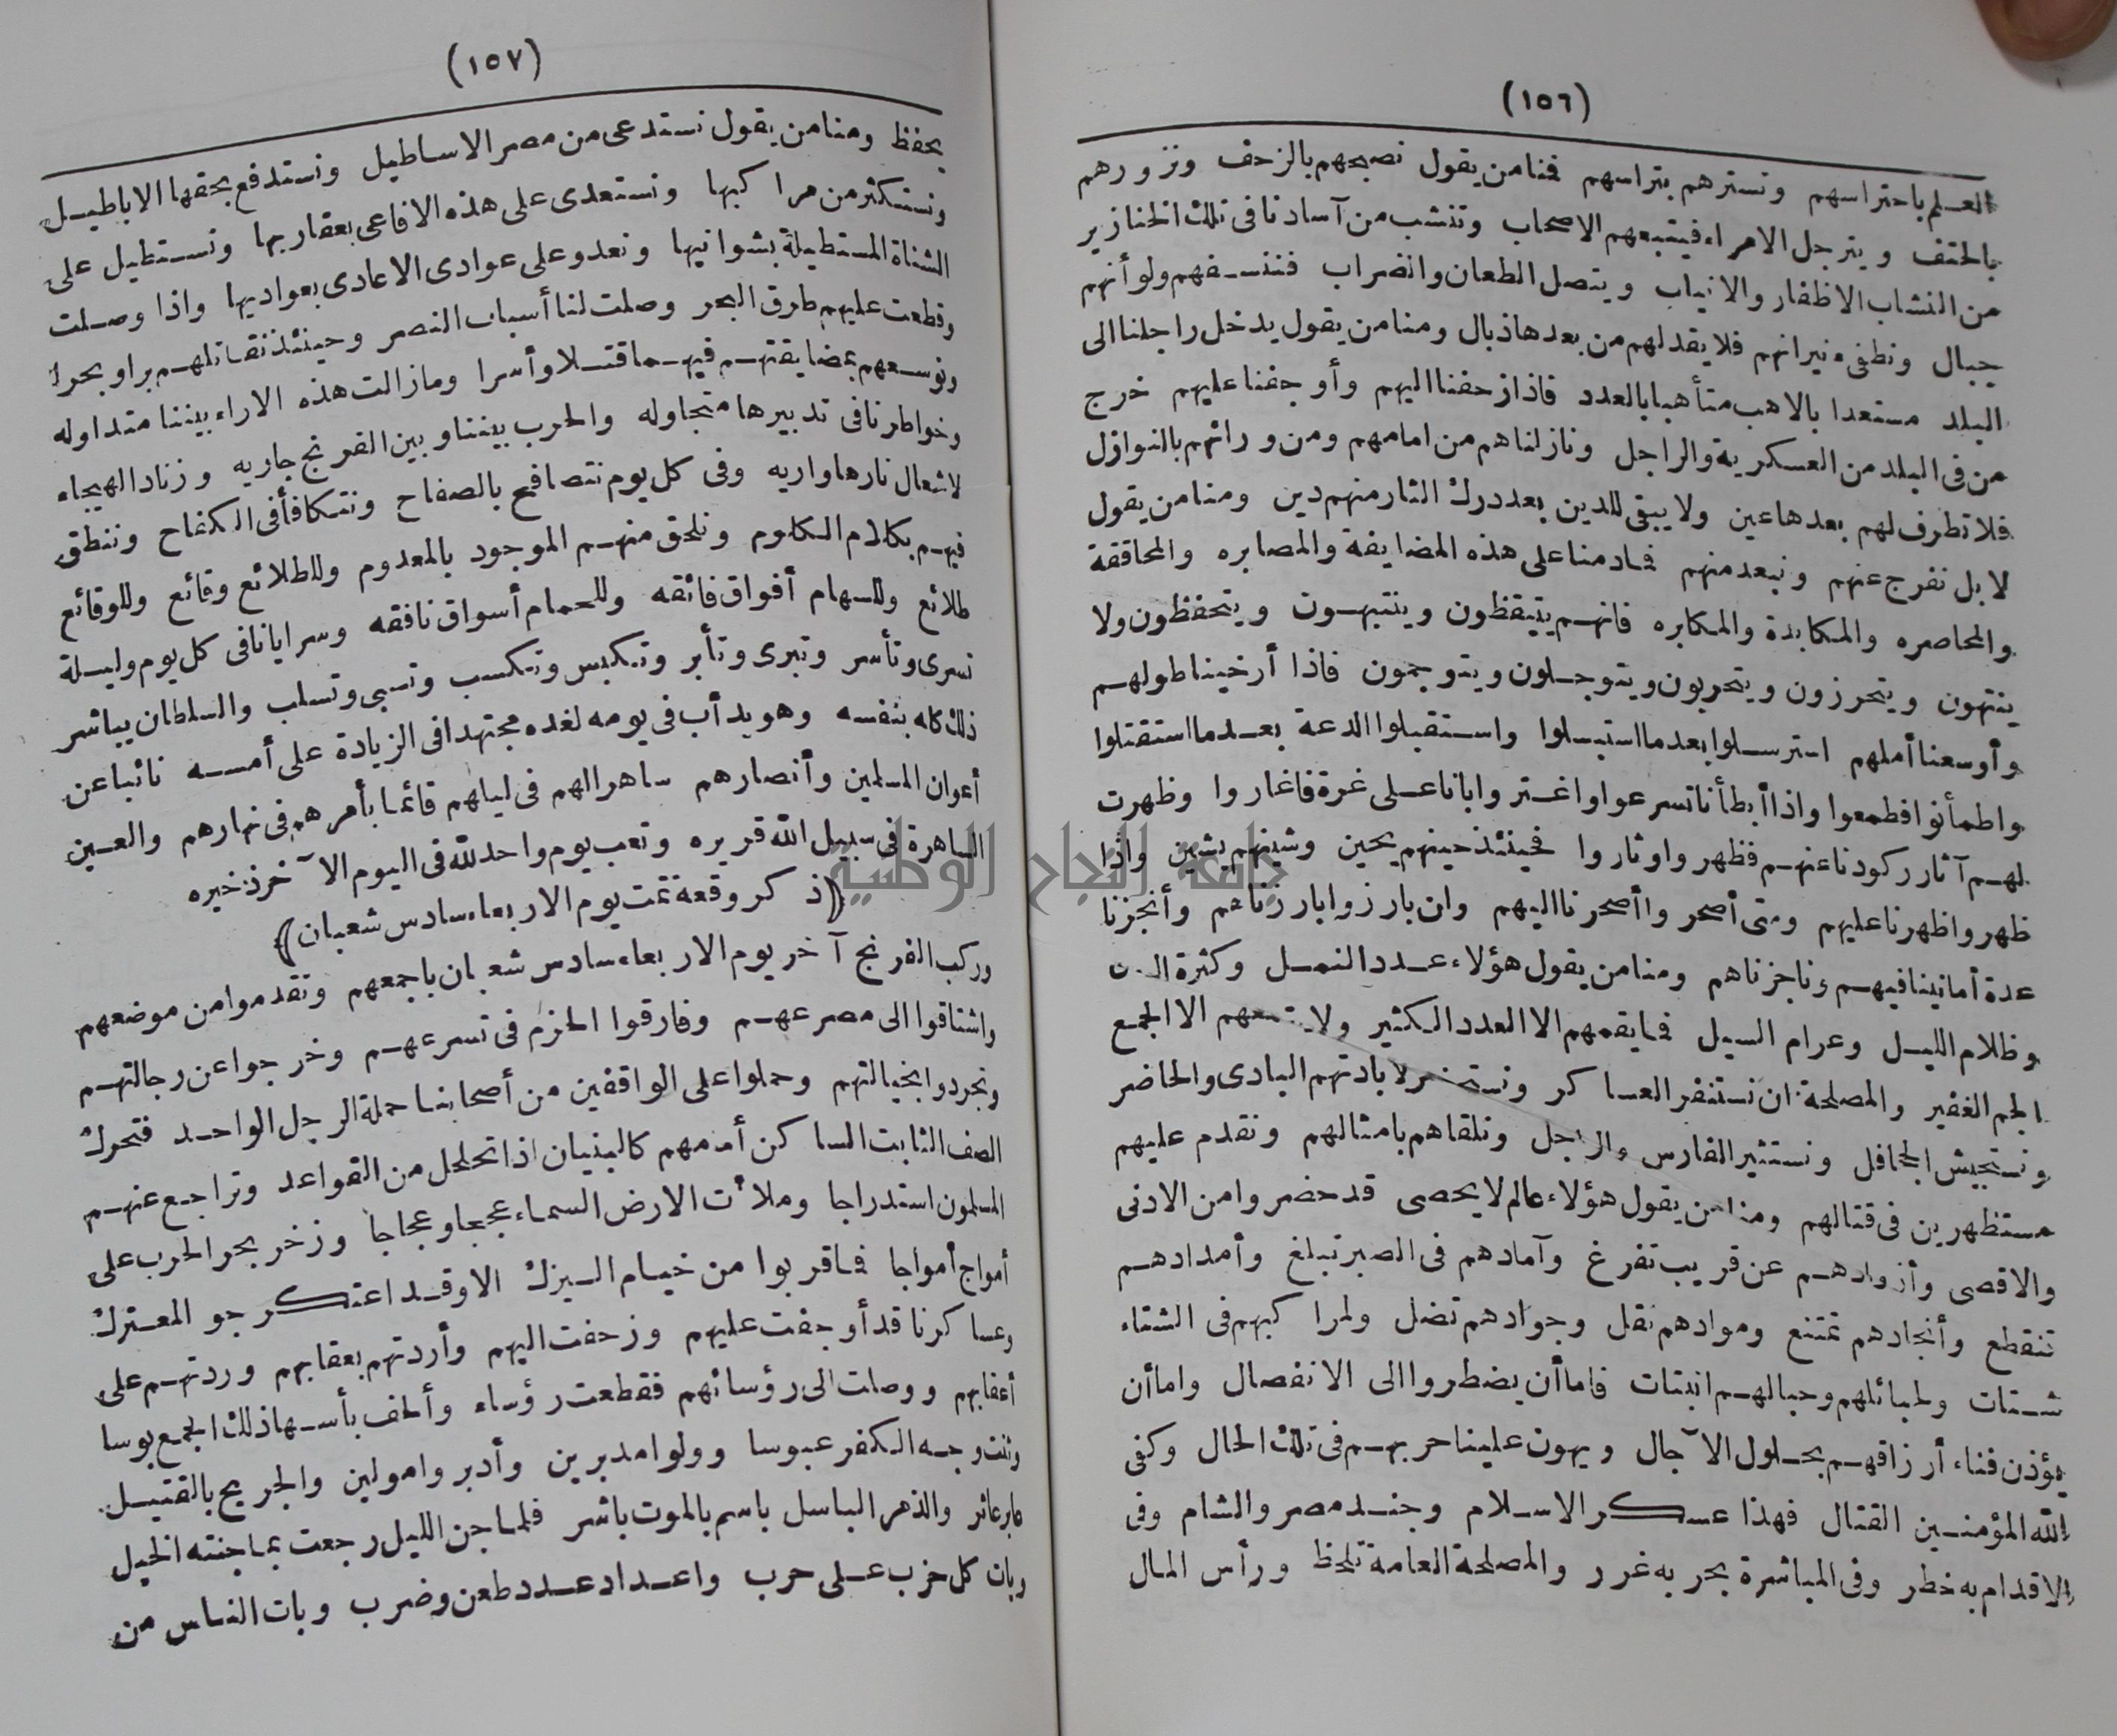 (١٥٦)
العلم باحتراسهم وتسترهم بتراسهم فنا من يقول نصبحهم بالزحف ونزورهم
بالحتف ويترجل الامراء فيتبعهم الاصحاب وتنشب من آسادنا فى تلك الخنازير
من النشاب الاظفار والانياب ويتصل الطعان والضراب فننسفهم ولو أنهم
جبال ونطفئ نيرانهم فلا يقد لهم من بعدها ذبال ومنا من يقول يدخل راجلنا الى
البلد مستعدا بالاهب متأهبا بالعدد فاذا زحفنا اليهم وأوجفنا عليهم خرج
من فى البلد من العسكرية والراجل ونازلناهم من امامهم ومن ورائهم بالنوازل
فلا تطرف لهم بعدها عين ولا يبقى للدين بعد درك الثار منهم دين ومنا من يقول
لا بل نفرج عنهم ونبعد منهم فادمنا على هذه المضايقة والمصابره والمحاققة
والمحاصره والمكابدة والمكابره فانهم يتيقظون وينتبهون ويتحفظون ولا
ينتهون ويتحرزون ويتحربون ويتوجلون ويتوجمون فاذا أرخينا طولهم
وأوسعنا أملهم استرسلوا بعد ما استبسلوا واستقبلوا الدعة بعد ما استقتلوا
واطمأنوا فطمعوا واذا أبطأنا تسرعوا واغتروا باناعلى غرة فاغاروا وظهرت
لهم آثار ركودنا عنهم فظهروا وثاروا فحينئذ حينهم يحين وشينهم يشين واذا
ظهروا ظهرنا عليهم ومتى أصحروا أصحرنا اليهم وان بارزوا بارزناهم وأنجزنا
عدة أمانينا فيهم وناجزناهم ومنا من يقول هؤلاء عدد النمل وكثرة
وظلام الليل وعرام السيل فما يقمهم الا العدد الكثير ولا الا الجمع
الجم الغفير والمصلحة ان نستنفر العساكر ونستحضر لابادتهم البادى والحاضر
ونستجيش الجحافل ونستثير الفارس والراجل ونلقاهم بامثالهم ونقدم عليهم
مستظهرين فى قتالهم ومنا من يقول هؤلاء عالم لا يحصى قد حضروا من الادنى
والاقصى وأزوادهم عن قريب تفرغ وآمادهم فى الصبر تبلغ وأمدادهم
تنقطع وأنجادهم تمتنع وموادهم تقل وجوادهم تضل ولمراكبهم فى الشتاء
شتات ولحبائلهم وحبالهم انبتات فاما أن يضطروا الى الانفصال واما أن
يؤذن فناء أرزاقهم بحلول الآجال ويهون علينا حربهم فى تلك الحال وكفى
الله المؤمنين القتال فهذا عسكر الاسلام وجند مصر والشام وفى
الاقدام به خطر وفى المباشرة بحربه غرر والمصلحة العامة تلحظ ورأس المال
(١٥٧)
يحفظ ومنا من يقول نستدعى من مصر الاساطيل ونستدفع بحقها الاباطيل
ونستكثر من مراكبها ونستعدى على هذه الافاعى بعقاربها ونستطيل على
الشناة المستطيلة بشوانيها ونعدو على عوادى الاعادى بعواديها واذا وصلت
وقطعت عليهم طرق البحر وصلت لنا أسباب النصر وحينئذ نقاتلهم برا وبحرا
ونوسعهم بمضايقتهم فيهما قتلا وأسرا وما زالت هذه الاراء بيننا متداوله
وخواطرنا فى تدبيرها متجاوله والحرب بيننا وبين الفرنج جاريه وزناد الهيجاء
لاشعال نارها واريه وفى كل يوم نتصافح بالصفاح ونتكافأ فى الكفاح وننطق
فيهم بكلام الكلوم ونلحق منهم الموجود بالمعدوم وللطلائع وقائع وللوقائع
طلائع وللسهام أفواق فائقه وللحمام أسواق نافقه وسرايانا فى كل يوم وليلة
تسرى وتأسر وتبرى وتأبر وتكبس وتكسب وتسبى وتسلب والسلطان يباشر
ذلك كله بنفسه وهو يدأب فى يومه لغده مجتهدا فى الزيادة على أمسه نائبا عن
أعوان المسلمين وأنصارهم ساهرا لهم فى ليلهم قائما بأمرهم فى نهارهم والعين
الساهرة فى سبيل الله قريره وتعب يوم واحد لله فى اليوم الآخر ذخيره
﴿ذكر وقعة تمت يوم الاربعاء سادس شعبان﴾
وركب الفرنج آخر يوم الاربعاء سادس شعبان باجمعهم وتقدموا من موضعهم
واشتاقوا الى مصرعهم وفارقوا الحزم فى تسرعهم وخرجوا عن رجالتهم
وتجردوا بخيالتهم وحملوا على الواقفين من أصحابنا حملة الرجل الواحد فتحرك
الصف الثابت الساكن أمامهم كالبنيان اذا تحلحل من القواعد وتراجع عنهم
المسلمون استدراجا وملأت الارض السماء عجيجا وعجاجا وزخر بحر الحرب على
أمواج أمواجا فما قربوا من خيام اليزك الا وقد اعتكر جو المعترك
وعساكرنا قد أوجفت عليهم وزحفت اليهم وأردتهم بعقابهم وردتهم على
أعقابهم ووصلت الى رؤسائهم فقطعت رؤساء وألحف بأسها ذلك الجمع بوسا
وثنت وجه الكفر عبوسا وولوا مدبرين وأدبروا مولين والجريح بالقتيل
عابر عاثر والذمر الباسل باسم بالموت باشر فلما جن الليل رجعت بما جنته الخيل
وبات كل حزب على حرب واعداد عدد طعن وضرب وبات الناس من
جامعة النجاح الوطنية